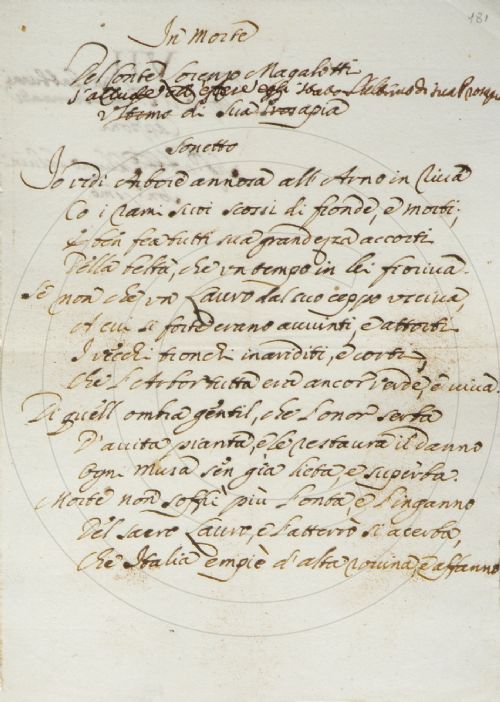 181
In Morte
Del Conte Lorenzo Magalotti
s'allude ad essere egli stato l'ultimo di sua
Ultimo di sua Prosapia
Sonetto
Io vidi Arbore annosa all'Arno in riva
Co i rami suoi scossi di fronde, e morti;
E ben fea tutti sua grandezza accorti
Della beltà, che un tempo in lei fioriva.
Se non che un Lauro dal suo ceppo usciva,
A cui si forte erano avvinti, e attorti
I vecchi tronchi inariditi, e corti,
Che l'Arbor tutta era ancor verde, e viva.
Di quell ombra gentil, che l'onor serba
D'avita pianta, e le restaura il danno
Ogni Musa sen già lieta, e superba.
Morte non soffrì più l'onta, e l'inganno
Del sacro Lauro, e l'atterrò sì acerba,
Che Italia empiè d'alta rovina, e affanno